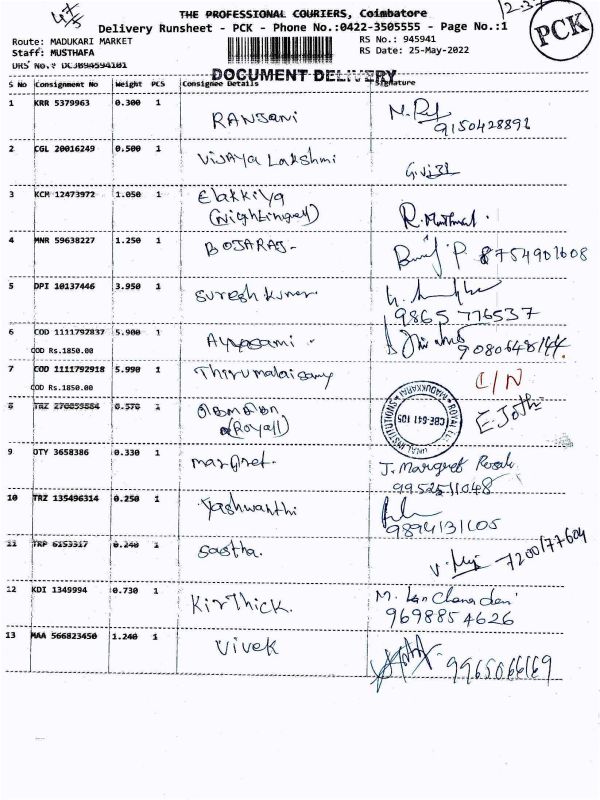 THE PROFESSIONAL COURIERS, Coimbatore
Delivery Runsheet - PCK - Phone No.:0422-3505555 - Page No.:1
PCK
Route: MADUKARI MARKET
RS No.: 945941
Staff: MUSTHAFA
RS Date: 25-May-2022
DRS No.: DCJB94594101
DOCUMENT DELIVERY
S No Consignment No Weight PCS Consignee Details Signature
1 KRR 5379963 0.300 1 RANJANI
9150428892
2 CGL 20016249 0.500 1 Vijaya Lakshmi
3 KCM 12473972 1.050 1 Elakkiya
(Nightingel)
4 MNR 59638227 1.250 1 BOJARAJ- 8754901608
5 DPI 10137446 3.950 1 Suresh kumar.
9865 776537
6 COD 1111792837 5.900 1 Ayyasami
COD Rs.1850.00
7 COD 1111792918 5.990 1 Thirumalaisamy C/N
COD Rs.1850.00
8 TRZ 270859884 0.570 1
(Royall) CBE-641 105 E. Jothi
9 OTY 3658386 0.330 1 margret. J. Margret
9952511048
10 TRZ 135496314 0.250 1 Yashwanthi
9894131605
11 TRP 6153317 0.240 1 Sastha. 7200177604
12 KDI 1349994 0.730 1 Kirthick.
9698854626
13 MAA 566823450 1.240 1 Vivek 9965066169